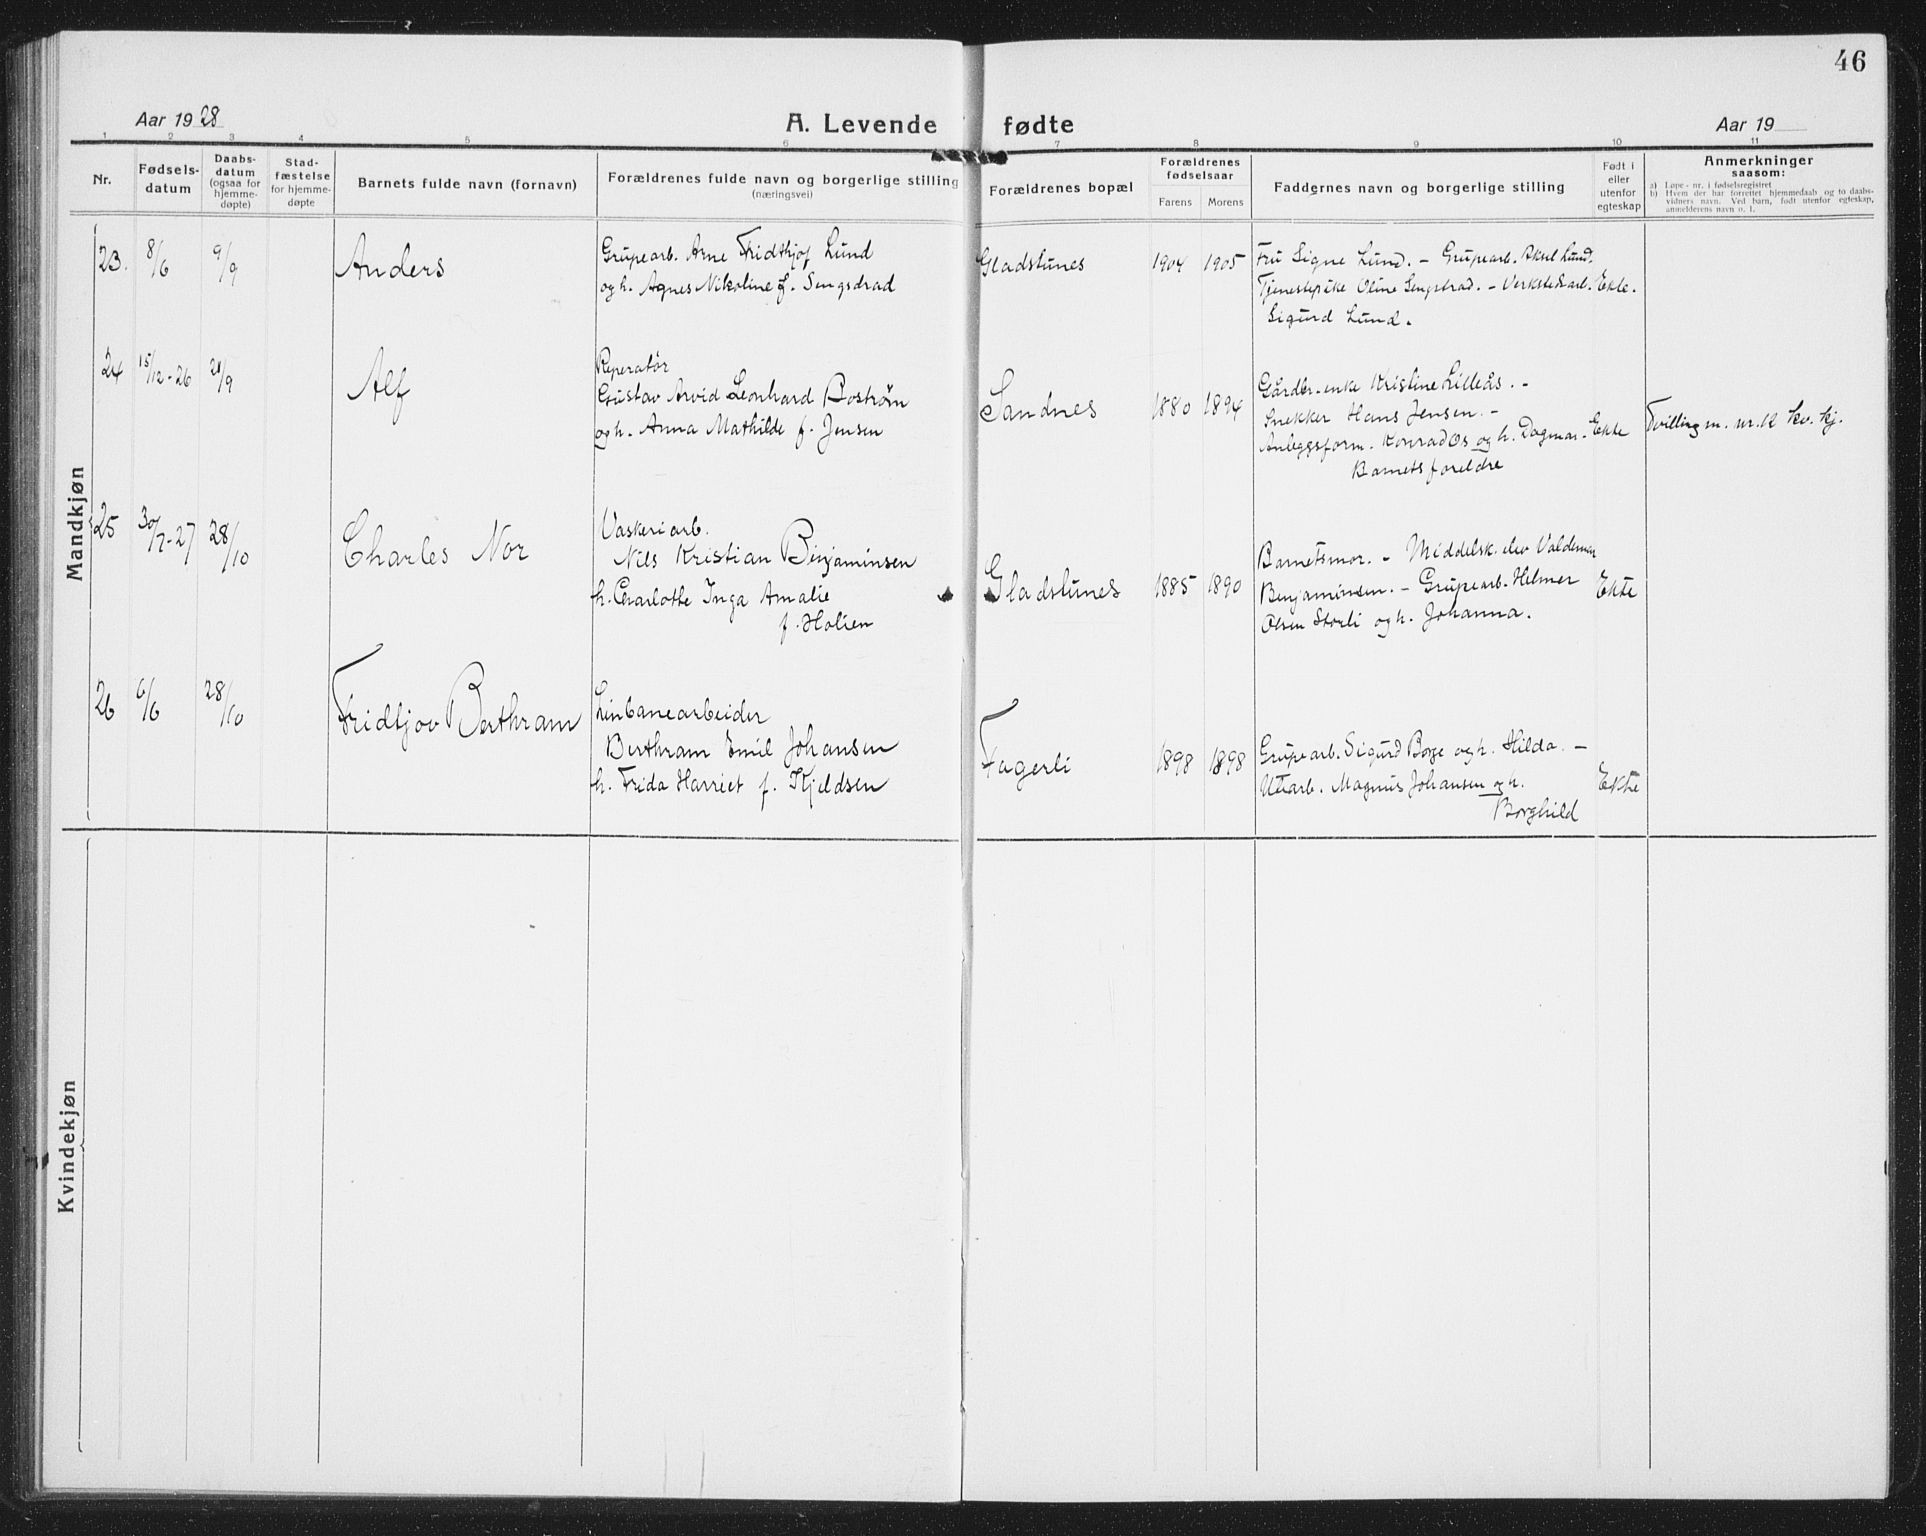 46
Aar 1928
A. Levende fødte
Aar 19
1 2 3 4 5 6 7 8 9 10 11
Nr.
Fødsels-
datum
Daabs-
datum
(ogsaa for
hjemme-
døpte)
Stad-
fæstelse
for hjemme-
døpte
Barnets fulde navn (fornavn)
Forældrenes fulde navn og borgerlige stilling
(næringsvei)
Forældrenes bopæl
Forældrenes
fødselsaar
Farens Morens
Faddernes navn og borgerlige stilling
Født i
eller
utenfor
egteskap
Anmerkninger
saasom:
a) Løpe-nr. i fødselsregistret
b) Hvem der har forrettet hjemmedaab og to daabs-
vidners navn. Ved barn, født utenfor egteskap,
anmelderens navn o. l.
Mandkjøn
23. 8/6 9/9
Anders
Grupearb. Arne Fridthjof Lund
og h. Agnes Nikoline f. Sengsdrad
Gladstunes
1904 1905
Fru Signe Lund. - Grupearb. Aksel Lund.
Tjenestepike Oline Sengstrad. - Verkstedsarb.
Sigurd Lund.
Ekte.
24 15/12-26 21/9
Alf
Reperatør
Gustav Arvid Leonhard Bostrøm
og h. Anna Mathilde f. Jensen
Sandnes
1880 1894
Gårdbr.enke Kristine Lilleås. -
Snekker Hans Jensen. -
Anleggsform. Konrad Os og h. Dagmar. -
Barnets foreldre
Ekte
Tvilling m. nr. 12 kv. kj.
25 30/7-27 28/10
Charles Nor
Vaskeriarb.
Nils Kristian Binjaminsen
h. Charlotte Inga Amalie
f. Holien
Gladstunes
1885 1890
Barnets mor. - Middelsk. elev Valdemar
Benjaminsen. - Grupearb. Helmer
Olsen Storli og h. Johanna.
Ekte
26 6/6 28/10
Fridtjov Berthram
Linbanearbeider
Berthram Emil Johansen
h. Frida Harriet f. Kjeldsen
Fagerli
1898 1898
Grupearb. Sigurd Borge og h. Hilda. -
Utearb. Magnus Johansen og h.
Borghild
Ekte
Kvindekjøn